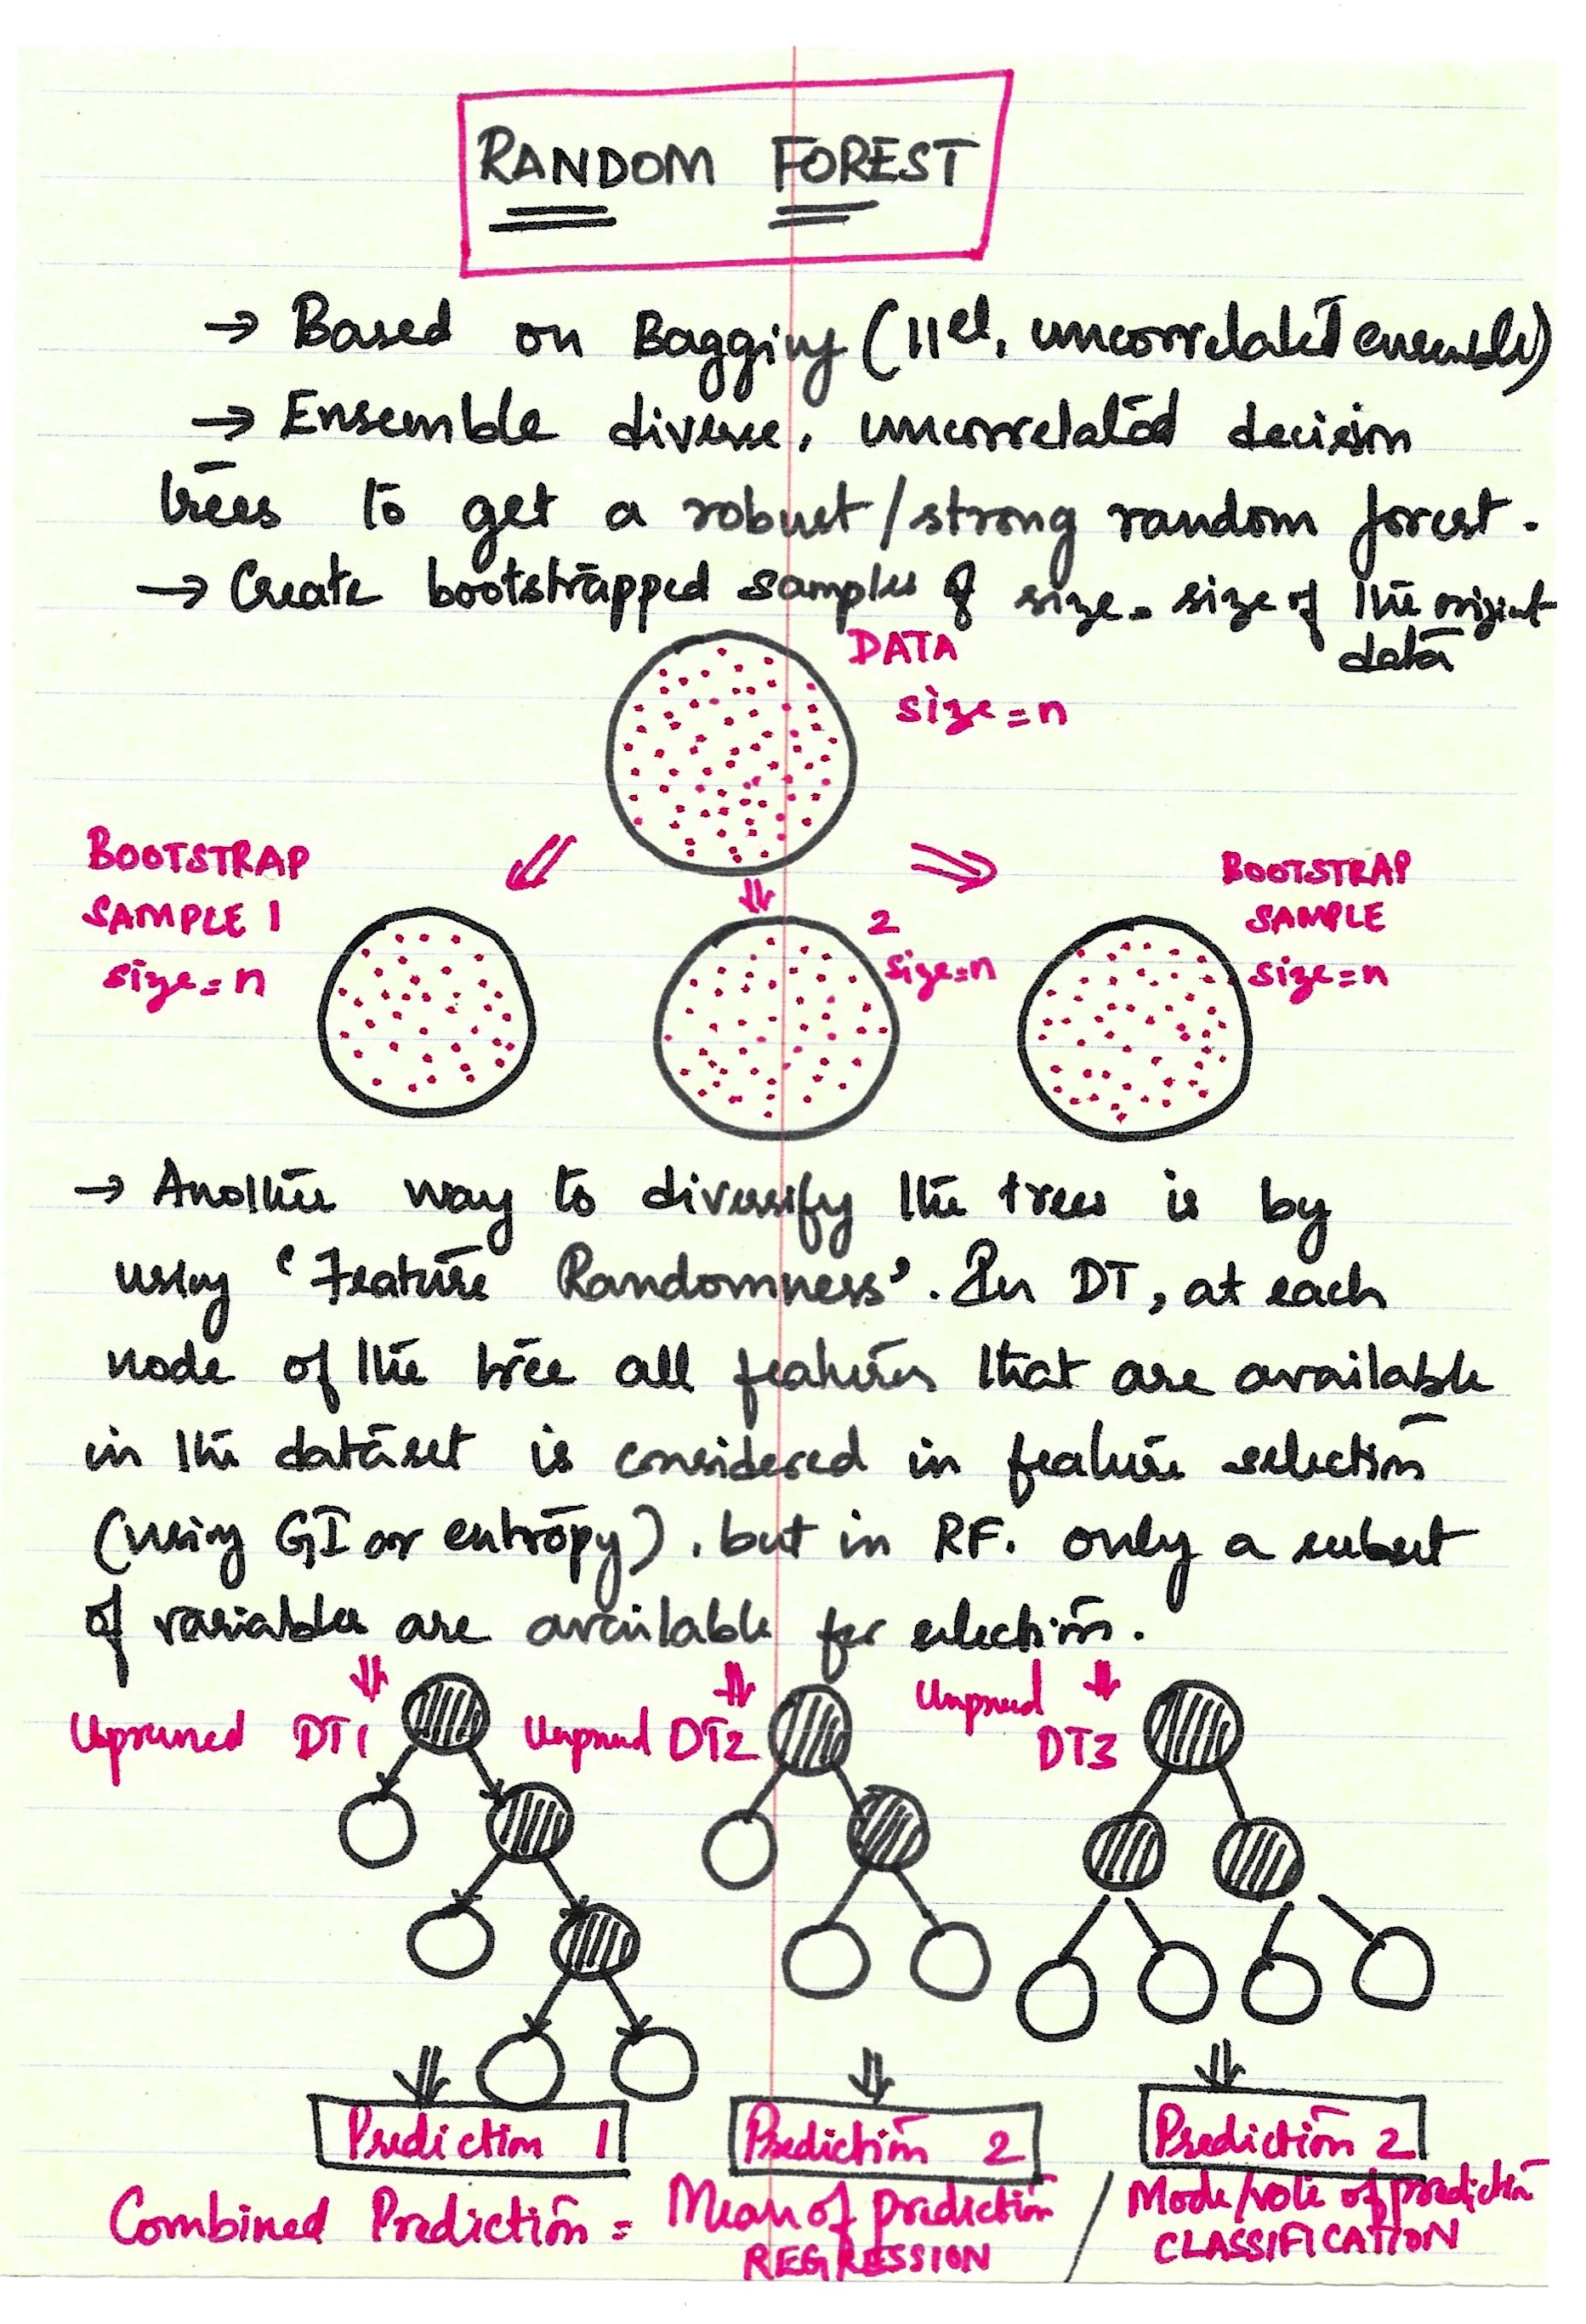 RANDOM FOREST
→ Based on Bagging (||el, uncorrelated ensemble)
→ Ensemble diverse, uncorrelated decision
trees to get a robust/strong random forest.
→ Create bootstrapped samples of size = size of the original
data
DATA
size = n
BOOTSTRAP
SAMPLE 1
size = n
2
size = n
BOOTSTRAP
SAMPLE
size = n
→ Another way to diversify the trees is by
using 'Feature Randomness'. In DT, at each
node of the tree all features that are available
in the dataset is considered in feature selection
(using GI or entropy), but in RF. only a subset
of variables are available for selection.
Unpruned DT1
Unpruned DT2
Unpruned
DT3
Prediction 1
Prediction 2
Prediction 2
Combined Prediction = Mean of prediction / Mode/vote of prediction
REGRESSION
CLASSIFICATION